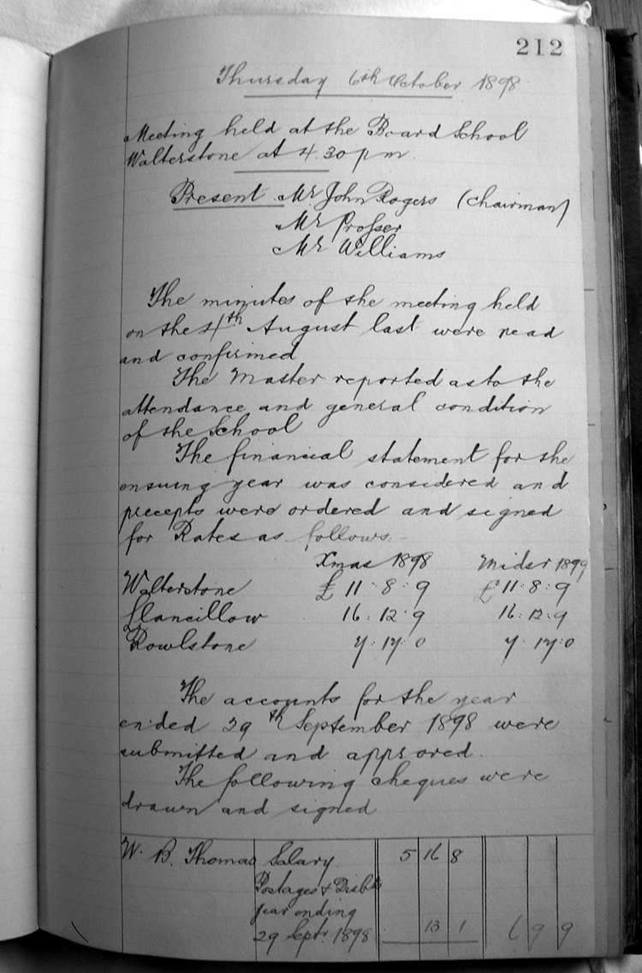 212
Thursday 6th October 1898
Meeting held at the Board School
Walterstone at 4.30 pm.
Present Mr John Rogers (Chairman)
Mr Prosser
Mr Williams
The minutes of the meeting held
on the 4th August last were read
and confirmed
The Master reported as to the
attendance and general condition
of the School
The financial statement for the
ensuing year was considered and
precepts were ordered and signed
for Rates as follows.-
Xmas 1898 Midsr 1899
Walterstone £ 11.8.9 £ 11.8.9
Llancillow 16.12.9 16.12.9
Rowlstone 7.17.0 7.17.0
The accounts for the year
ended 29th September 1898 were
submitted and approved.
The following cheques were
drawn and signed
W. B. Thomas Salary 5 16 8
Postages & Disbts
year ending
29 Sept. 1898 13 1 6 9 9